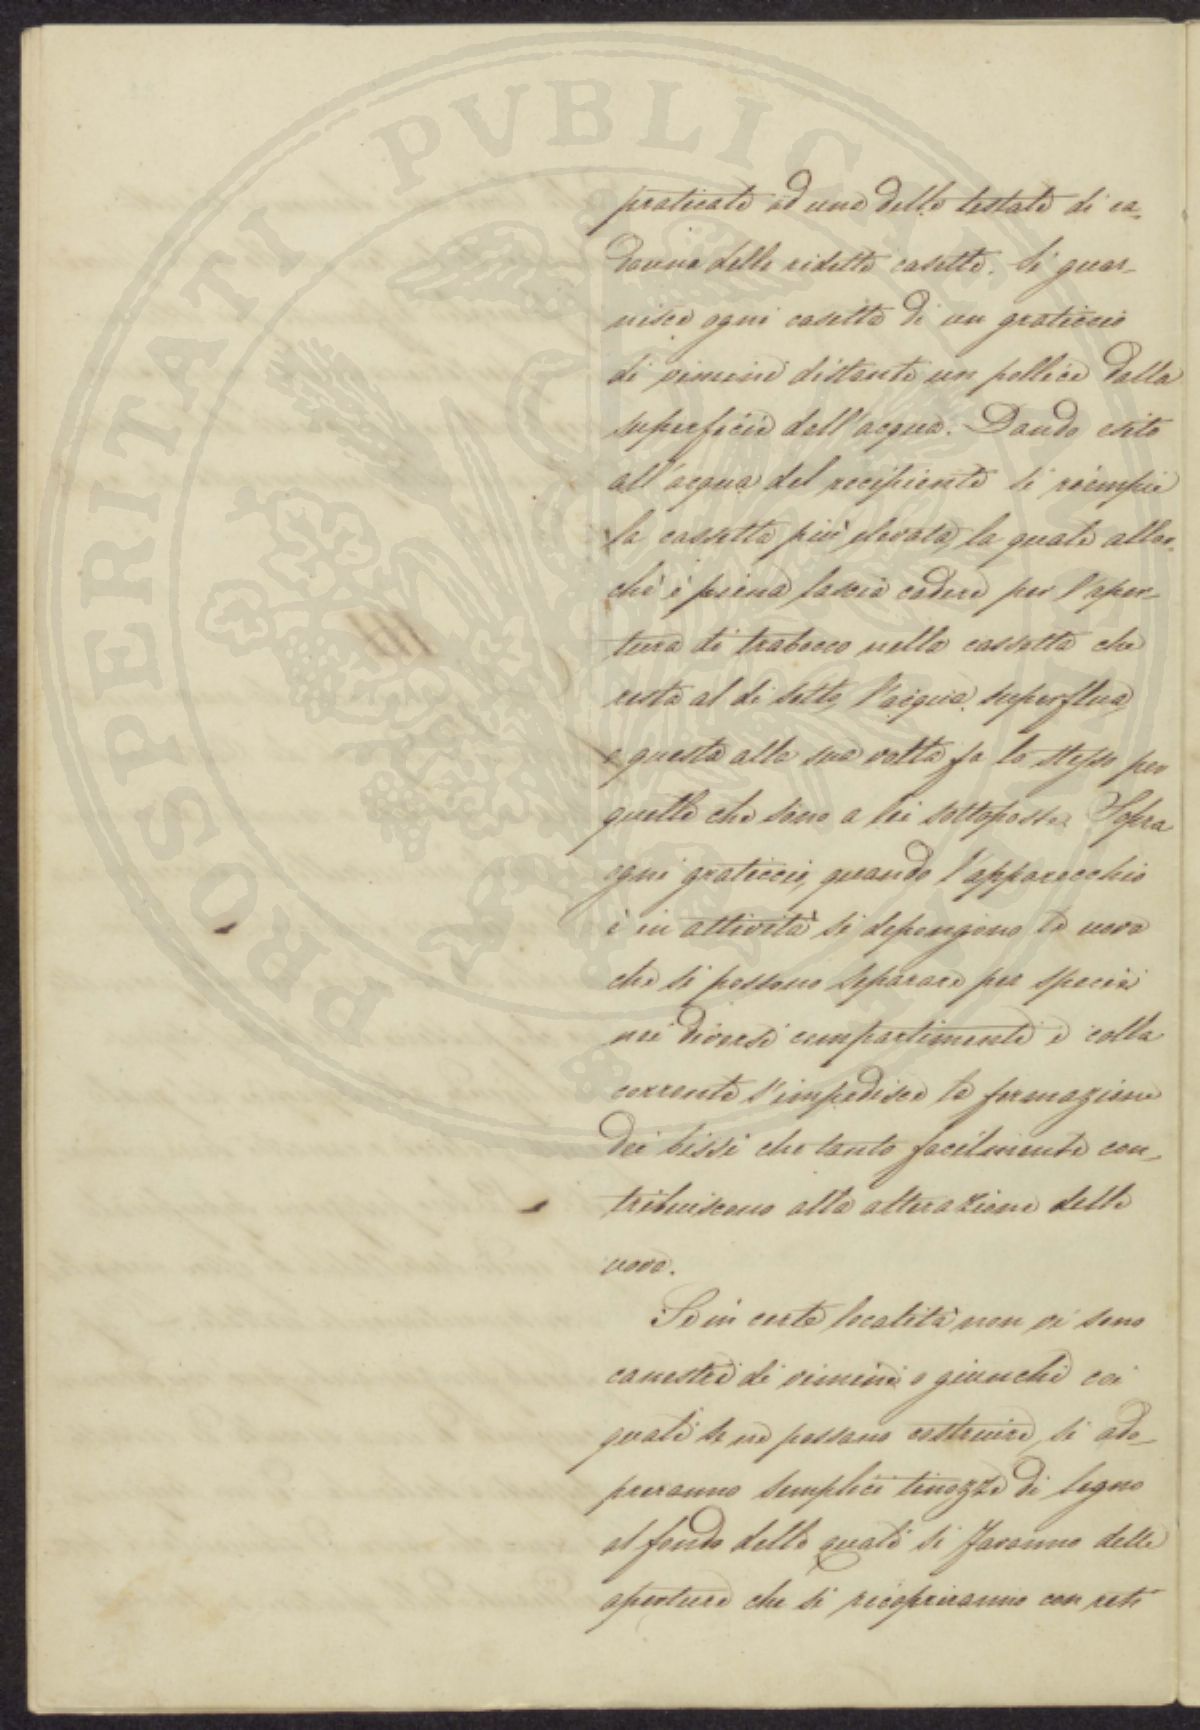 PROSPERITATI PVBLICAE
praticate ad una delle testate di ca-
dauna delle ridette casette. Si guar-
nisce ogni casetta di un graticcio
di vimini distante un pollice dalla
superficie dell'acqua. Dando esito
all'acqua del recipiente si riempie
la cassetta più elevata, la quale allor-
chè è piena lascia cadere per l'aper-
tura di trabocco nella cassetta che
resta al di sotto l'acqua superflua,
e questa alla sua volta fa lo stesso per
quelle che sono a lei sottoposte. Sopra
ogni graticcio, quando l'apparecchio
è in attività si depongono le uova
che si possono separare per specie
nei diversi compartimenti e colla
corrente s'impedisce la formazione
dei bissi che tanto facilmente con-
tribuiscono alla alterazione delle
uova.
Se in certe località non vi sono
canestri di vimini o giunchi coi
quali se ne possano costruire, si ado-
preranno semplici tinozze di legno
al fondo delle quali si faranno delle
aperture che si ricopriranno con rete